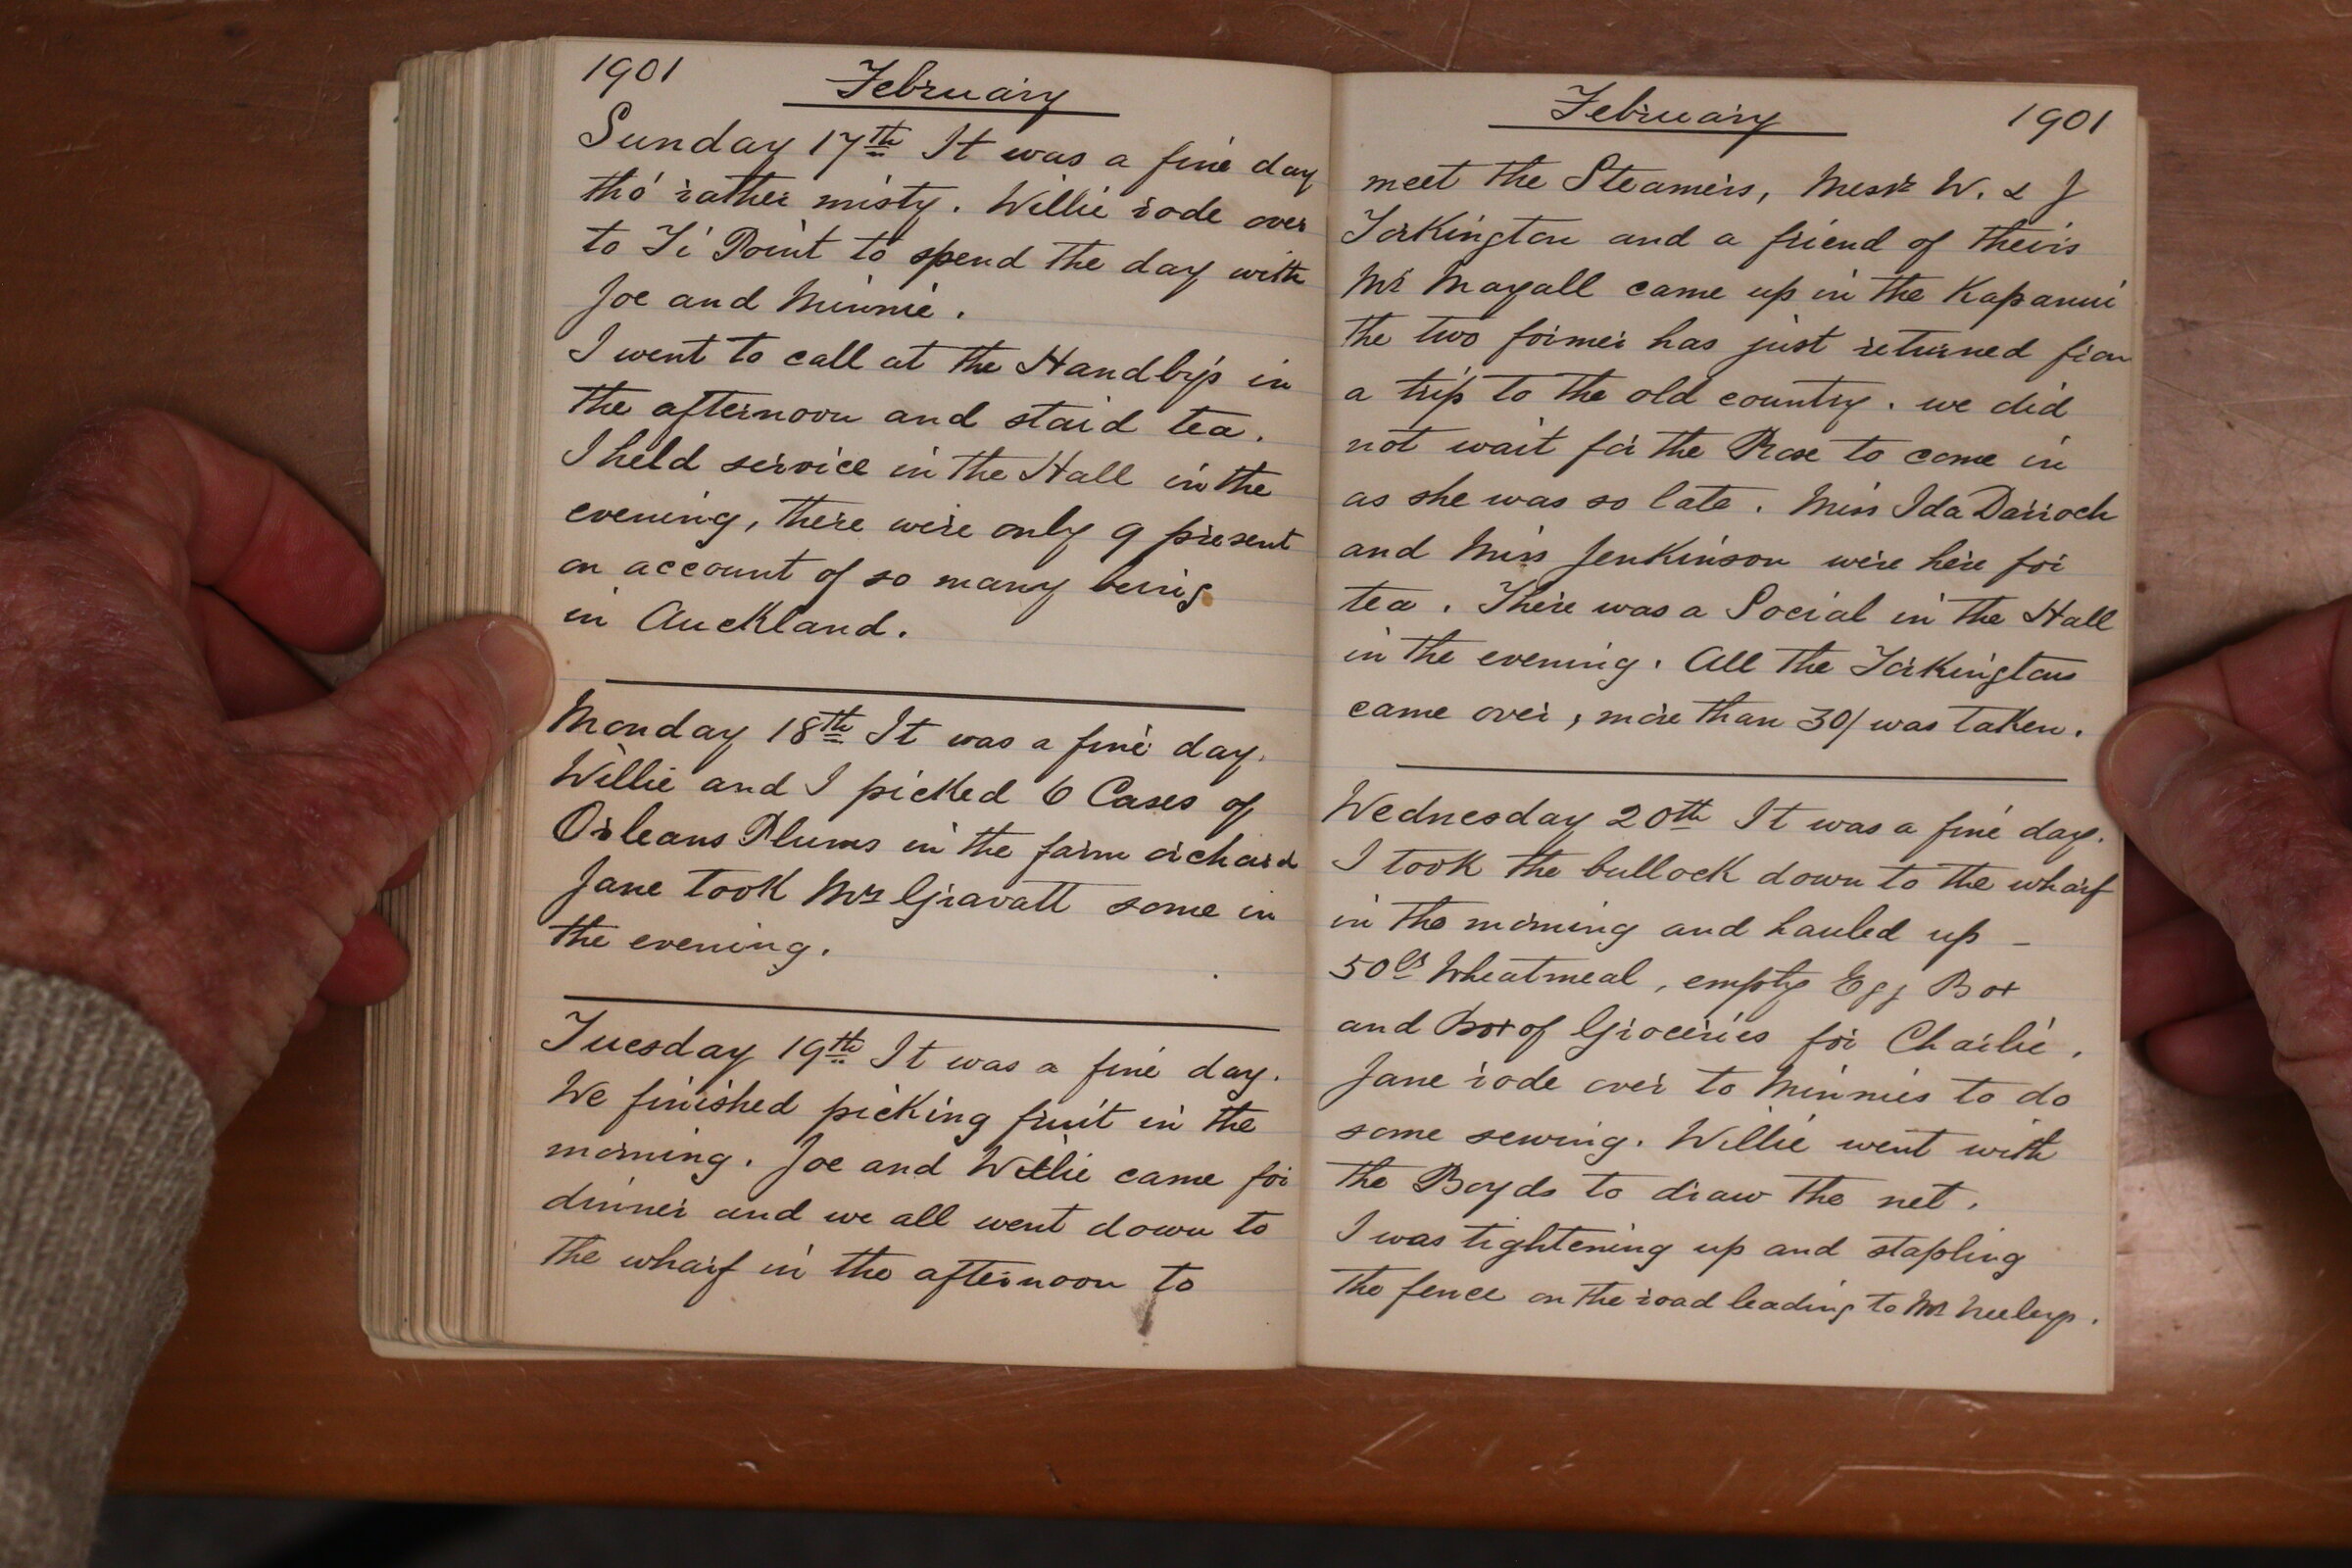 1901
February
Sunday 17th It was a fine day
tho' rather misty. Willie rode over
to Ti Point to spend the day with
Joe and Minnie.
I went to call at the Handby's in
the afternoon and staid tea.
I held service in the Hall in the
evening, there were only 9 present
on account of so many being
in Auckland.
Monday 18th It was a fine day.
Willie and I picked 6 Cases of
Orleans Plums in the farm orchard
Jane took Mrs Gravatt some in
the evening.
Tuesday 19th It was a fine day.
We finished picking fruit in the
morning. Joe and Willie came for
dinner and we all went down to
the wharf in the afternoon to
February
1901
meet the Steamers, Messrs W. & J
Torkington and a friend of theirs
Mr Mayall came up in the Kapanui
the two former has just returned from
a trip to the old country. we did
not wait for the Rose to come in
as she was so late. Miss Ida Darroch
and Miss Jenkinson were here for
tea. There was a Social in the Hall
in the evening. All the Torkingtons
came over, more than 30/ was taken.
Wednesday 20th It was a fine day.
I took the bullock down to the wharf
in the morning and hauled up -
50lbs Wheatmeal, empty Egg Box
and Box of Groceries for Charlie.
Jane rode over to Minnies to do
some sewing. Willie went with
the Boyds to draw the net.
I was tightening up and stapling
the fence on the road leading to Mr